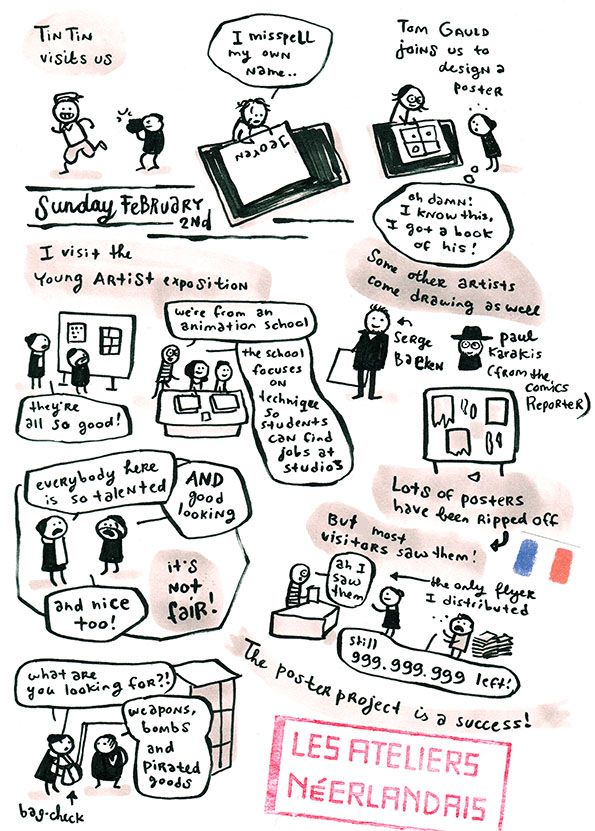 TinTin
visits us
I misspell
my own
name..
Jeoren
Tom Gauld
joins us to
design a
poster
oh damn!
I know this,
I got a book
of his!
Sunday February
2nd
I visit the
Young Artist exposition
they're
all so good!
we're from an
animation school
the school
focuses
on
technique
so
students
can find
jobs at
studios
Some other artists
come drawing as well
Serge
Baeken
Paul
Karakis
(from the
comics
Reporter)
Lots of posters
have been ripped off
everybody here
is so talented
AND
good
looking
and nice
too!
it's
not
fair!
But most
visitors saw them!
ah I
saw
them
the only flyer
I distributed
still
999.999.999 left!
The poster project is a success!
what are
you looking for?!
weapons,
bombs
and
pirated
goods
bag-check
LES ATELIERS
NÉERLANDAIS